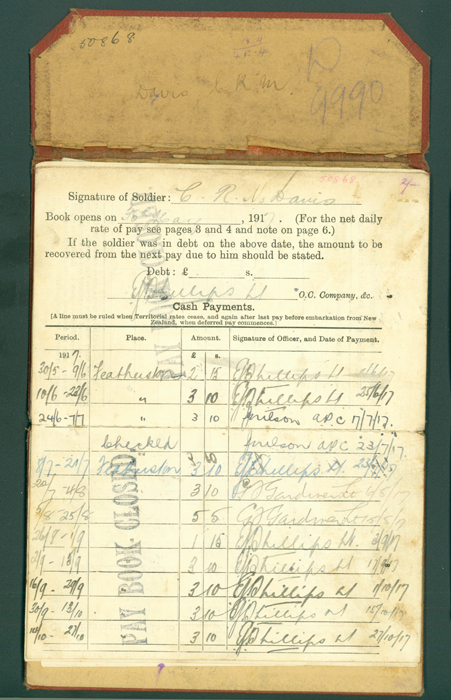 50868
Davis C. R. N.
9990
50868
2/-
Signature of Soldier: C. R. N. Davis
Book opens on 30 May, 1917. (For the net daily
rate of pay see pages 3 and 4 and note on page 6.)
If the soldier was in debt on the above date, the amount to be
recovered from the next pay due to him should be stated.
Debt: £ s.
Phillips Lt O.C. Company, &c.
Cash Payments.
[A line must be ruled when Territorial rates cease, and again after last pay before embarkation from New
Zealand, when deferred pay commences.]
Period. Place. Amount. Signature of Officer, and Date of Payment.
1917. £ s.
30/5 - 9/6 Featherston 2 15 Phillips Lt
10/6 - 22/6 " 3 10 Phillips Lt 25/6/17
24/6 - 7/7 " 3 10 Wilson A.P.C 7/7/17.
Checked Wilson APC 23/7/17.
8/7 - 20/7 Featherston 3 10 Phillips Lt.
3 10 Gardiner Lt
25/8 5 5 Gardiner
1 15 Phillips Lt.
3 10 Phillips Lt
16/9 - 29/9 3 10 Phillips Lt 1/10/17
30/9 - 13/10 3 10 Phillips Lt
27/10 3 10 Phillips Lt 27/10/17
PAY BOOK CLOSED